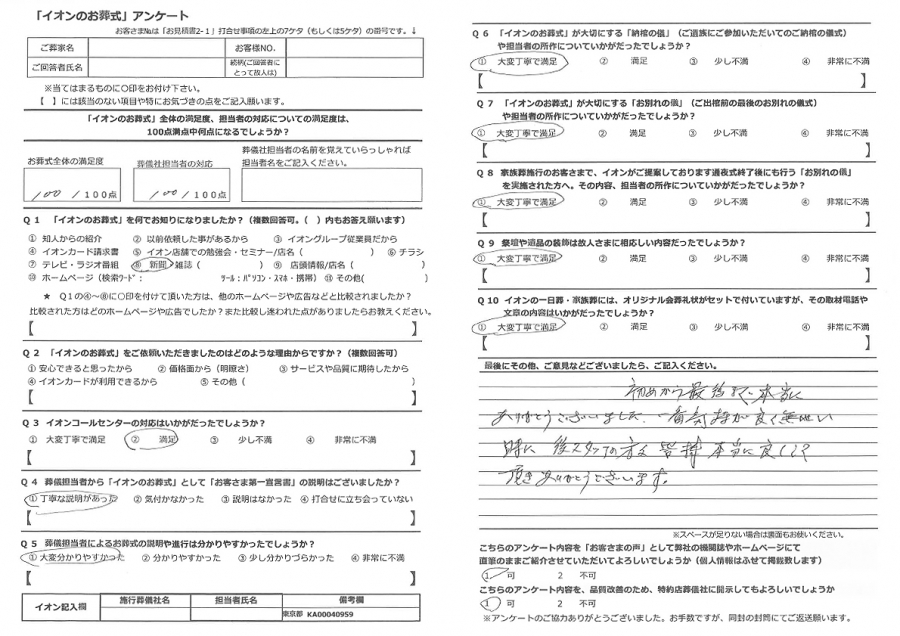 「イオンのお葬式」アンケート
お客さま№は「お見積書2-1」打合せ事項の左上の7ケタ（もしくは5ケタ）の番号です。↓
ご葬家名 お客様NO.
ご回答者氏名 続柄(ご回答者にとって故人は)
※当てはまるものに○印をお付け下さい。
【 】には該当のない項目や特にお気づきの点をご記入願います。
「イオンのお葬式」全体の満足度、担当者の対応についての満足度は、
100点満点中何点になるでしょうか？
お葬式全体の満足度 葬儀社担当者の対応 葬儀社担当者の名前を覚えていらっしゃれば
担当者名をご記入ください。
100 /100点 100 /100点
Q 1 「イオンのお葬式」を何でお知りになりましたか？（複数回答可。（ ）内もお答え願います）
① 知人からの紹介 ② 以前依頼した事があるから ③ イオングループ従業員だから
④ イオンカード請求書 ⑤ イオン店舗での勉強会・セミナー/店名（ ） ⑥ チラシ
⑦ テレビ・ラジオ番組 ⑧ 新聞/雑誌（ ） ⑨ 店頭情報/店名（ ）
⑩ ホームページ（検索ﾜｰﾄﾞ： ﾂｰﾙ：ﾊﾟｿｺﾝ・ｽﾏﾎ・携帯） ⑪ その他( )
★ Q１の④～⑧に○印を付けて頂いた方は、他のホームページや広告などと比較されましたか？
比較された方はどのホームページや広告でしたか？また比較し迷われた点がありましたらお教えください。
【 】
Q 2 「イオンのお葬式」をご依頼いただきましたのはどのような理由からですか？（複数回答可）
① 安心できると思ったから ② 価格面から（明瞭さ） ③ サービスや品質に期待したから
④ イオンカードが利用できるから ⑤ その他（ ）
【 】
Q 3 イオンコールセンターの対応はいかがだったでしょうか？
① 大変丁寧で満足 ② 満足 ③ 少し不満 ④ 非常に不満
【 】
Q 4 葬儀担当者から「イオンのお葬式」として「お客さま第一宣言書」の説明はございましたか？
① 丁寧な説明があった ② 気付かなかった ③ 説明はなかった ④ 打合せに立ち会っていない
【 】
Q 5 葬儀担当者によるお葬式の説明や進行は分かりやすかったでしょうか？
① 大変分かりやすかった ② 分かりやすかった ③ 少し分かりづらかった ④ 非常に不満
【 】
イオン記入欄 施行葬儀社名 担当者氏名 備考欄
東京都 KA00040959
Q 6 「イオンのお葬式」が大切にする「納棺の儀」（ご遺族にご参加いただいてのご納棺の儀式）
や担当者の所作についていかがだったでしょうか？
① 大変丁寧で満足 ② 満足 ③ 少し不満 ④ 非常に不満
【 】
Q 7 「イオンのお葬式」が大切にする「お別れの儀」（ご出棺前の最後のお別れの儀式）
や担当者の所作についていかがだったでしょうか？
① 大変丁寧で満足 ② 満足 ③ 少し不満 ④ 非常に不満
【 】
Q 8 家族葬施行のお客さまで、イオンがご提案しております通夜式終了後にも行う「お別れの儀」
を実施された方へ。その内容、担当者の所作についていかがだったでしょうか？
① 大変丁寧で満足 ② 満足 ③ 少し不満 ④ 非常に不満
【 】
Q 9 祭壇や遺品の装飾は故人さまに相応しい内容だったでしょうか？
① 大変丁寧で満足 ② 満足 ③ 少し不満 ④ 非常に不満
【 】
Q10 イオンの一日葬・家族葬には、オリジナル会葬礼状がセットで付いていますが、その取材電話や
文章の内容はいかがだったでしょうか？
① 大変丁寧で満足 ② 満足 ③ 少し不満 ④ 非常に不満
【 】
最後にその他、ご意見などございましたら、ご記入ください。
初めから最後まで本当に
ありがとうございました。一番気持が良く無い
時に 後スタッフの方も 皆様 本当に良くして
頂きありがとうございます。
※スペースが足りない場合は裏面もお使いください。
こちらのアンケート内容を「お客さまの声」として弊社の機関誌やホームページにて
直筆のままご紹介させていただいてよろしいでしょうか（個人情報はふせて掲載致します）
1 可 2 不可
こちらのアンケート内容を、品質改善のため、特約店葬儀社に開示してもよろしいでしょうか
1 可 2 不可
※アンケートのご協力ありがとうございました。お手数ですが、同封の封筒にてご返送願います。